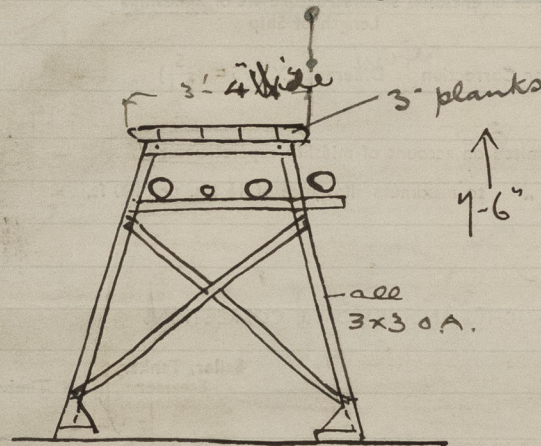 3'-4" Wide
3" planks
7-6"
all
3x3 O.A.